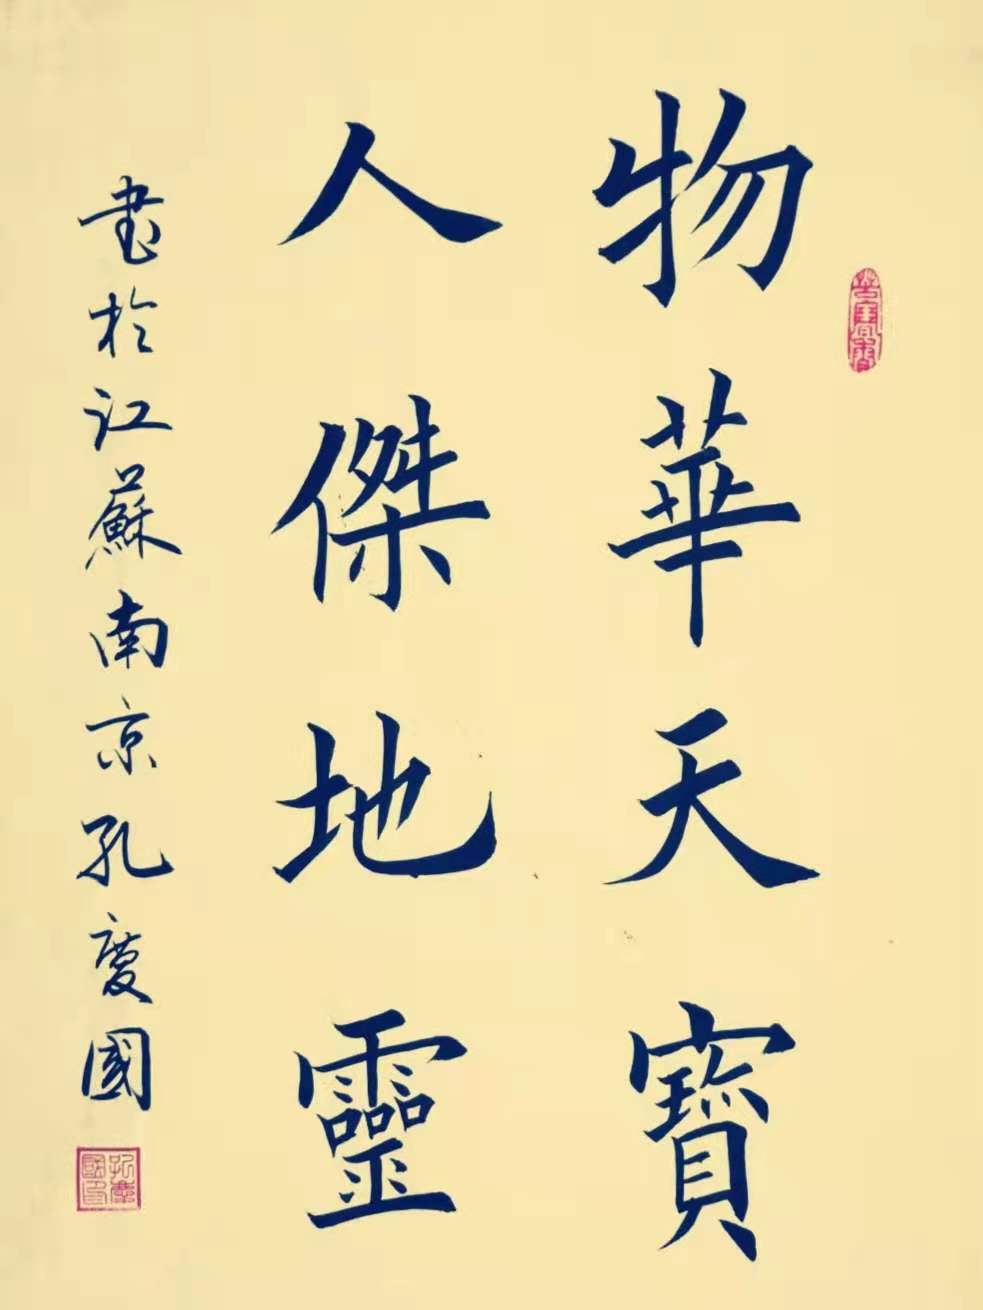 物華天寳
人傑地靈
書於江蘇南京孔慶國